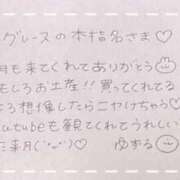 グレースの本指名さま♡
月も来てくれてありがとう
もしろお土産!!買ってくれてる
ころ想像したらニヤけちゃう♡
outubeも観てくれてうれしい
た来月(˙ᵕ˙)♡ ゆずる